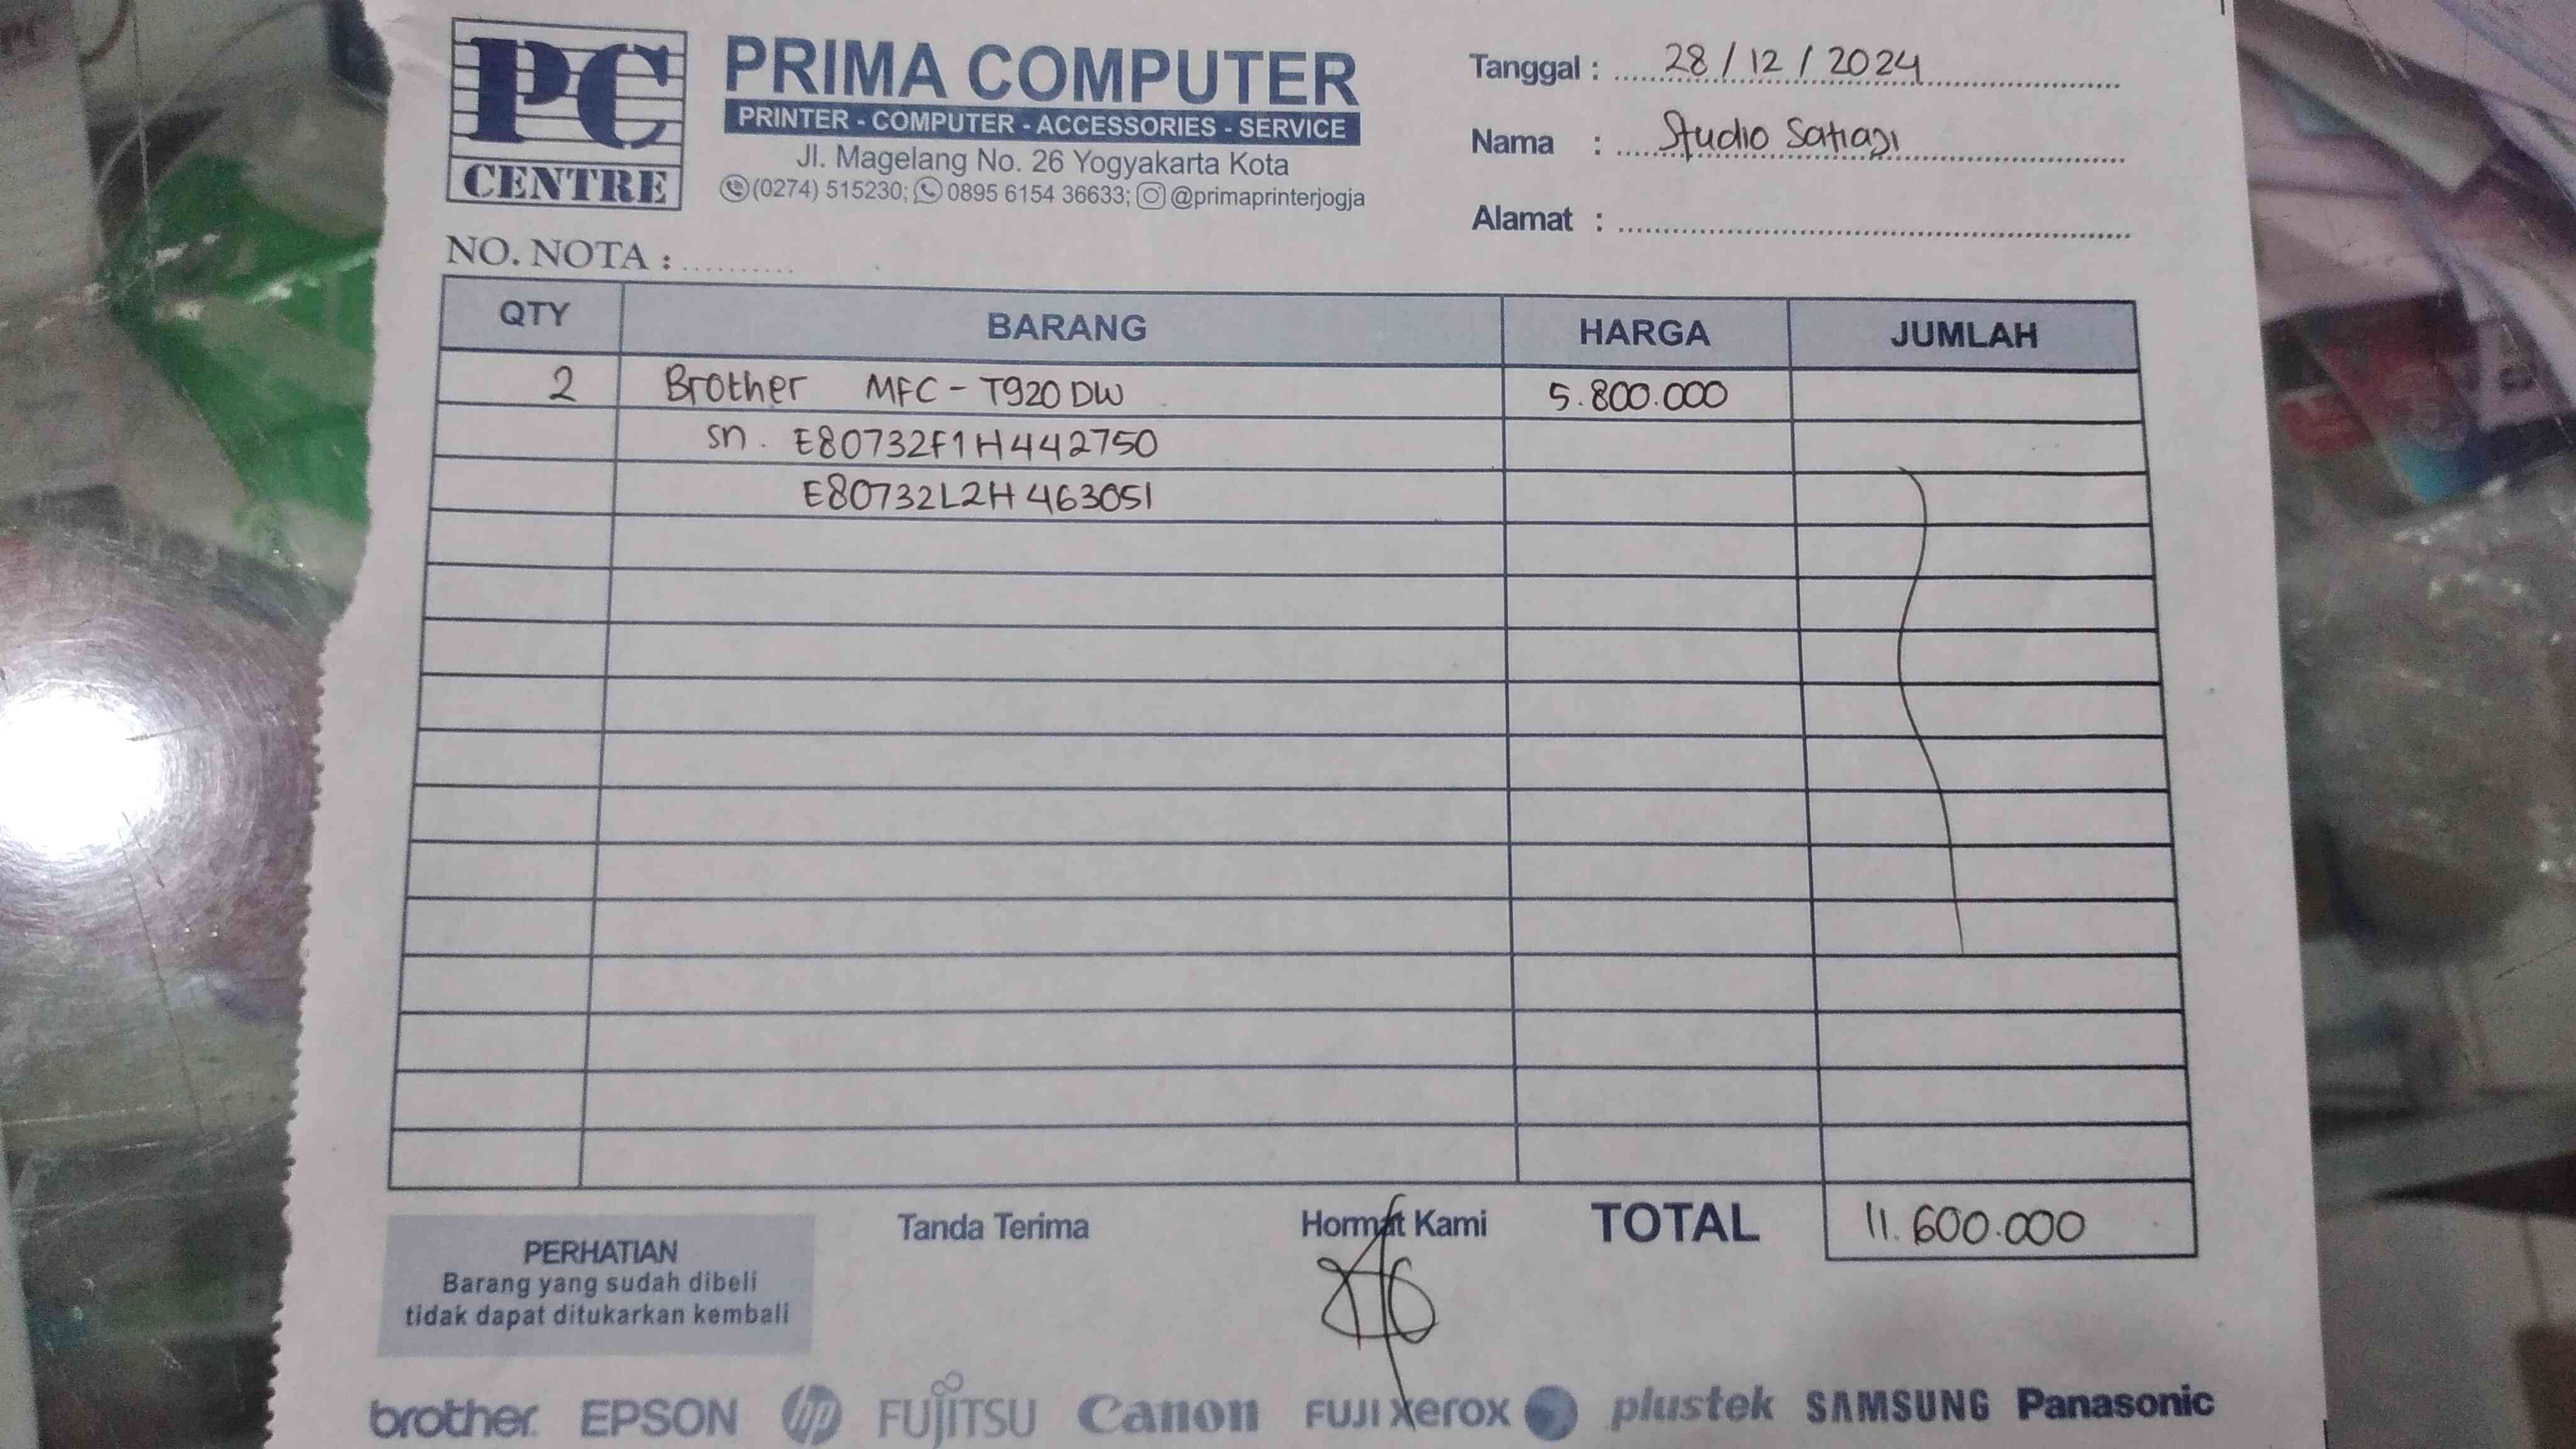 PC
CENTRE
PRIMA COMPUTER
PRINTER - COMPUTER - ACCESSORIES - SERVICE
Jl. Magelang No. 26 Yogyakarta Kota
(0274) 515230; 0895 6154 36633; @primaprinterjogja
Tanggal : 28 / 12 / 2024
Nama : Studio Satiagi
Alamat :
NO. NOTA :
QTY BARANG HARGA JUMLAH
2 Brother MFC - T920 DW 5.800.000
sn. E80732F1H442750
E80732L2H463051
TOTAL 11.600.000
Tanda Terima
Hormat Kami
PERHATIAN
Barang yang sudah dibeli
tidak dapat ditukarkan kembali
brother EPSON hp FUJITSU Canon FUJI Xerox plustek SAMSUNG Panasonic